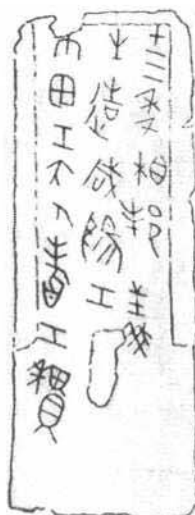 十三年相邦義
之造咸陽工
帀田工大人耆工穨